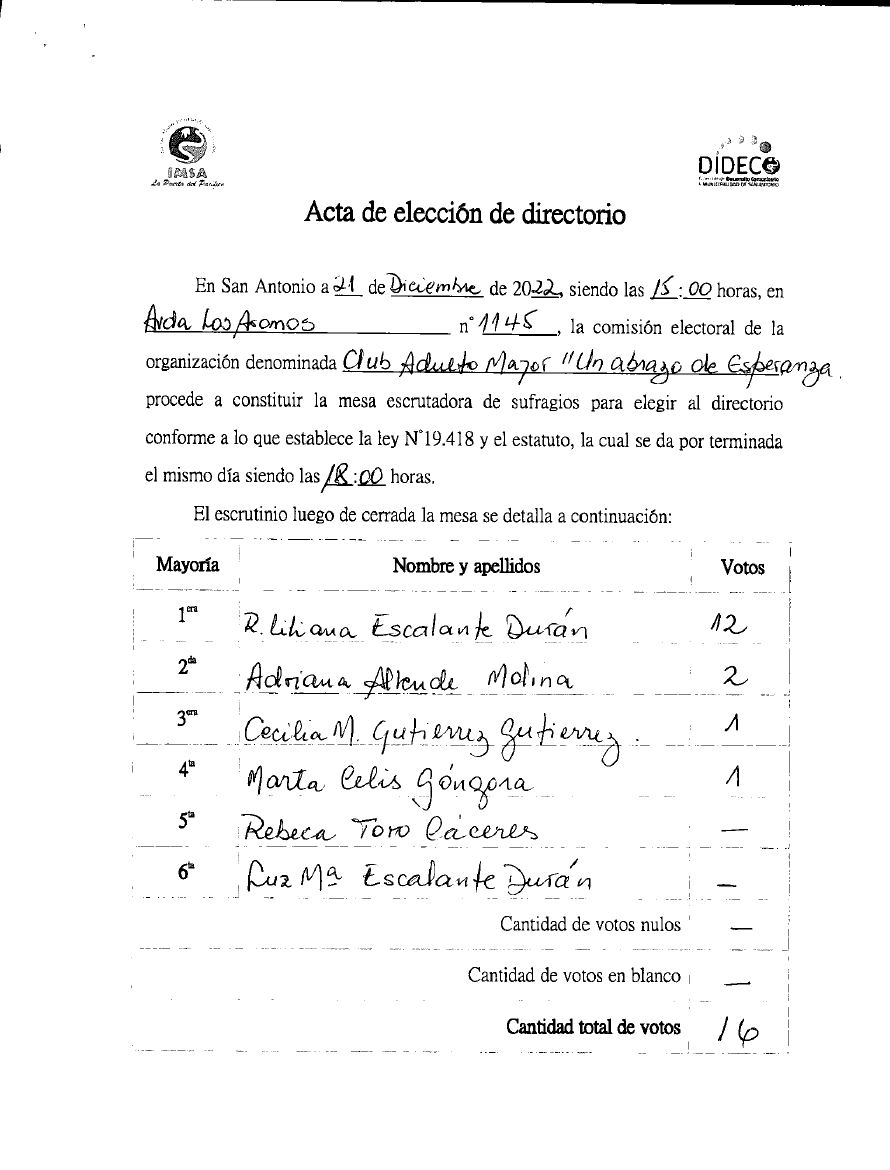 IMSA
La Puerta del Pacífico
DIDECO
Acta de elección de directorio
En San Antonio a 21 de Diciembre de 2022, siendo las 15:00 horas, en
Avda Los Aromos n° 1145, la comisión electoral de la
organización denominada Club Adulto Mayor "Un abrazo de Esperanza.
procede a constituir la mesa escrutadora de sufragios para elegir al directorio
conforme a lo que establece la ley N°19.418 y el estatuto, la cual se da por terminada
el mismo día siendo las 18:00 horas.
El escrutinio luego de cerrada la mesa se detalla a continuación:
Mayoría Nombre y apellidos Votos
1era R. Liliana Escalante Durán 12
2da Adriana Allende Molina 2
3era Cecilia M. Gutierrez Gutierrez. 1
4ta Marta Celis Góngora 1
5ta Rebeca Toro Cáceres —
6ta Luz Mª Escalante Durán —
Cantidad de votos nulos —
Cantidad de votos en blanco —
Cantidad total de votos 16